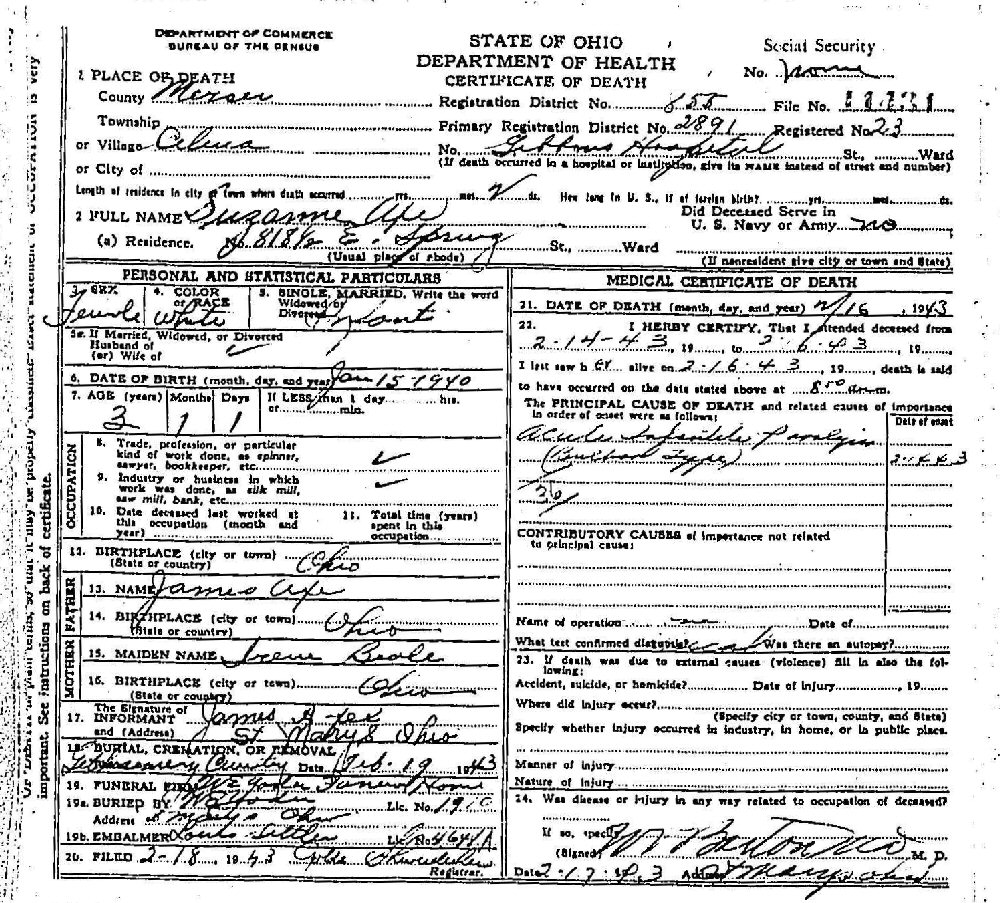 DEPARTMENT OF COMMERCE
BUREAU OF THE CENSUS
STATE OF OHIO
DEPARTMENT OF HEALTH
CERTIFICATE OF DEATH
Social Security
No. none
1 PLACE OF DEATH
County Mercer
Registration District No. 855 File No.
Township
Primary Registration District No. 2891 Registered No 23
or Village Celina No. Gibbons Hospital St., Ward
(If death occurred in a hospital or institution, give its NAME instead of street and number)
or City of
Length of residence in city or town where death occurred yrs. mos. 2 ds. How long in U. S., if of foreign birth? yrs. mos. ds.
2 FULL NAME Suzanne Axe Did Deceased Serve in
U. S. Navy or Army no
(a) Residence. No. 818½ E. Spring St., Ward
(Usual place of abode) (If nonresident give city or town and State)
PERSONAL AND STATISTICAL PARTICULARS
3. SEX 4. COLOR or RACE 5. SINGLE, MARRIED, Write the word
Widowed or
Divorced
Female White
5a. If Married, Widowed, or Divorced
Husband of
(or) Wife of
6. DATE OF BIRTH (month, day, and year) Jan 15 1940
7. AGE (years) Months Days If LESS than 1 day hrs.
or min.
3 1 1
OCCUPATION
8. Trade, profession, or particular
kind of work done, as spinner,
sawyer, bookkeeper, etc.
9. Industry or business in which
work was done, as silk mill,
saw mill, bank, etc.
10. Date deceased last worked at
this occupation (month and
year)
11. Total time (years)
spent in this
occupation
12. BIRTHPLACE (city or town)
(State or country) Ohio
FATHER
13. NAME James Axe
14. BIRTHPLACE (city or town)
(State or country) Ohio
MOTHER
15. MAIDEN NAME Irene
16. BIRTHPLACE (city or town)
(State or country) Ohio
17. The Signature of
INFORMANT James Axe
and (Address) St Marys Ohio
18. BURIAL, CREMATION, OR REMOVAL
County Date Feb. 19 1943
19. FUNERAL FIRM Funeral Home
19a. BURIED BY Lic. No. 1910
Address St Marys Ohio
19b. EMBALMER Louis Lic. No. 4641A
20. FILED 2-18, 1943
Registrar.
MEDICAL CERTIFICATE OF DEATH
21. DATE OF DEATH (month, day, and year) 2/16, 1943
22. I HERBY CERTIFY, That I attended deceased from
2-14-43, 19, to 2-16-43, 19
I last saw her alive on 2-16-43, 19, death is said
to have occurred on the date stated above at 8:50 a.m.
The PRINCIPAL CAUSE OF DEATH and related causes of importance
in order of onset were as follows:
Date of onset
Acute Infantile Paralysis
(Bulbar Type)
36
CONTRIBUTORY CAUSES of importance not related
to principal cause:
Name of operation no Date of
What test confirmed diagnosis? Was there an autopsy?
23. If death was due to external causes (violence) fill in also the fol-
lowing:
Accident, suicide, or homicide? Date of injury, 19
Where did injury occur?
(Specify city or town, county, and State)
Specify whether injury occurred in industry, in home, or in public place.
Manner of injury
Nature of injury
24. Was disease or injury in any way related to occupation of deceased?
If so, specify
(Signed) M. D.
Date 2-17-43 Address St Marys Ohio
important. See instructions on back of certificate.